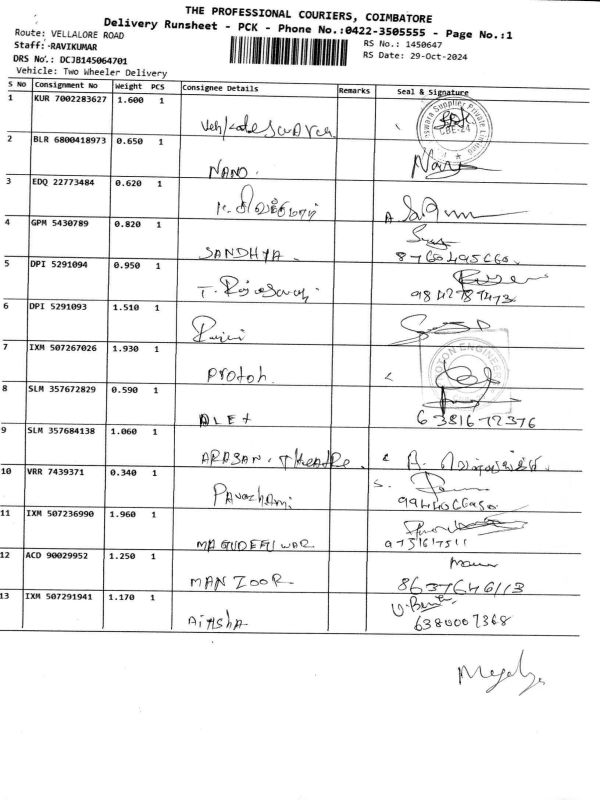 THE PROFESSIONAL COURIERS, COIMBATORE
Delivery Runsheet - PCK - Phone No.:0422-3505555 - Page No.:1
Route: VELLALORE ROAD
RS No.: 1450647
Staff:-RAVIKUMAR
RS Date: 29-Oct-2024
DRS No.: DCJB145064701
Vehicle: Two Wheeler Delivery
S No Consignment No Weight PCS Consignee Details Remarks Seal & Signature
1 KUR 7002283627 1.600 1
2 BLR 6800418973 0.650 1
NANO.
3 EDQ 22773484 0.620 1
4 GPM 5430789 0.820 1
SANDHYA. 8760495660.
5 DPI 5291094 0.950 1
9842787473
6 DPI 5291093 1.510 1
7 IXM 507267026 1.930 1
Proton.
8 SLM 357672829 0.590 1
ALEX 6381672376
9 SLM 357684138 1.060 1
ARASAN. Theatre.
10 VRR 7439371 0.340 1
Pavazhami
11 IXM 507236990 1.960 1
12 ACD 90029952 1.250 1
MANZOOR 8637646113
13 IXM 507291941 1.170 1
Aitisha 6380007368